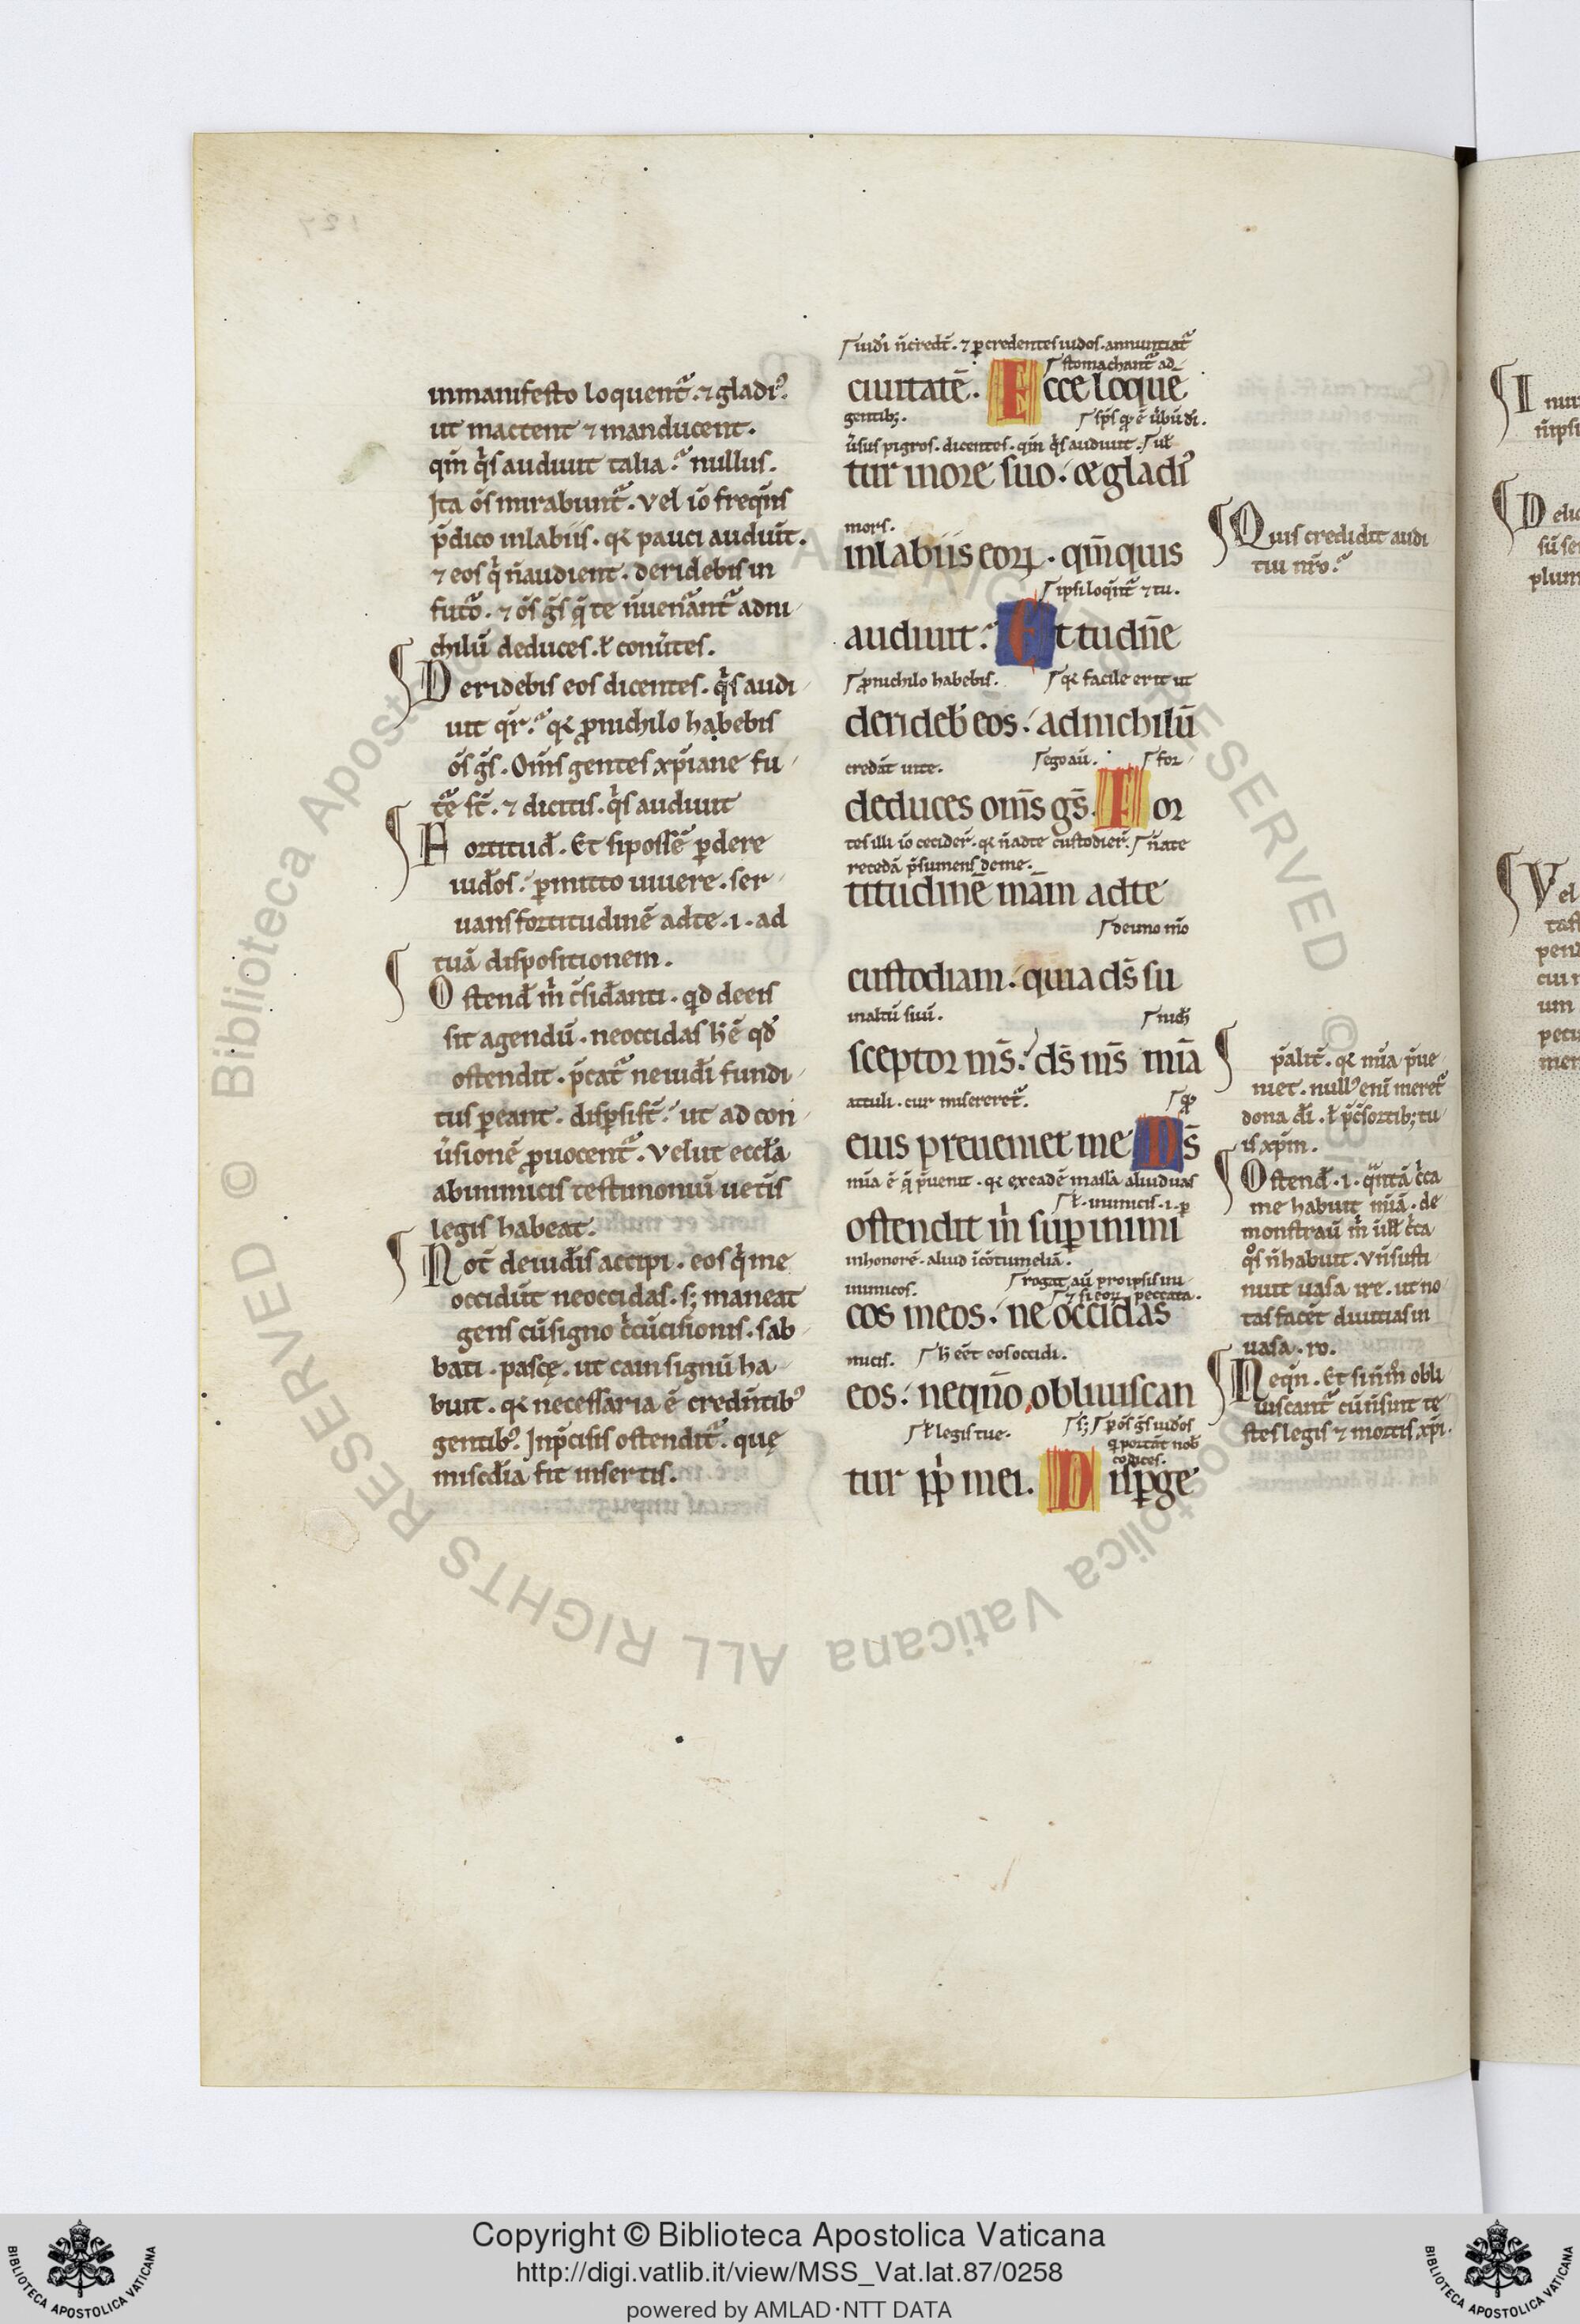 in manifesto loquent᷑. ⁊ gladi᷒.
ut mactent ⁊ manducent.
qm̄ q̇s audiuit talia? nullus.
Ita o᷒s mirabunt᷑. Vel iō freq̄ns
p̄dico in labiis. q̄ pauci audiūt.
⁊ eos q̇ n̄ audient. deridebis in
fut᷑o. ⁊ o᷒s ḡs
chilū deduces. ł conūtes.
Deridebis eos dicentes. q̇s audi
uit qr̄? q̄ ꝓ nichilo habebis
o᷒s ḡs. Om̄s gentes xp̄iane fu
⁊ dicitis. q̇s audiuit
Fortitud̄. Et si possē ꝑdere
iud̄os. ꝑmitto uiuere. ser
uans fortitudinē ad te .i. ad
tuā dispositionem.
Ostend̄ ṁ c̄sid̄anti. qd̄ de eis
sit agendū. ne occidas h̄ ē qd̄
ostendit. p̄cat᷑ ne iud̄i fundi
tus ꝑeant. disp̄si st̄. ut ad con
ūsionē ꝓuocent᷑. Velut eccła
ab inimicis testimoniū uet̄is
legis habeat.
Not̄ de iud̄is accipi. eos q̇ me
occidūt ne occidas. s; maneat
gens cū signo c̄cūcisionis. sab
bati. pascę. ut cain signū ha
buit. q̄ necessaria ē cred̄ntib᷒
gentib᷒. In p̄cisis ostendit᷑. quę
misc̄dia fit insertis.
iud̄i n̄ cred̄t. ⁊ ꝑ credentes iud̄os. annuntiat᷑
stomachant᷑ ad
ciuitatē. Ecce loque
gentib;.
ūsus pigros. dicentes. qm̄ q̇s audiuit. ul̄
tur in ore suo. ⁊ gladi᷒
mors.
in labiis eoꝝ. qm̄ quis
ipsi loq̄nt᷑ ⁊ tu.
audiuit? Et tu dn̄e
ꝓ nichilo habebis. q̄ facile erit ut
derideb̄ eos. ad nichilū
credāt uite. ego aū. for
deduces om̄s gs̄. For
tes illi iō cecider̄. q̄ n̄ ad te custodier̄. n̄ a te
recedā p̄sumens de me.
titudinē mām ad te
de uno m̄o
custodiam. quia ds̄ su
in altū suū. nich̄
sceptor ms̄. ds̄ ms̄ mīa
attuli. cur misereret᷑. qꝫ
eius preueniet me. Ds̄
mīa ē q̄ p̄uenit. q̄ ex eadē massa aliud uas
ł inimicis .i. ꝑ
ostendit ṁ suꝑ inimi
in honorē. aliud ī c̄otumeliā.
inimicos. rogat aū pro ipsis ini
⁊ si eoꝝ peccata.
cos meos. ne occidas
micis. h̄ eēt eos occidi.
eos. neqn̄o obliuiscan
ł legis tue. s; ꝑ o᷒s ḡs iudos
q̇ portāt nob̄
codices.
tur ppł̄i mei. Dispge
Quis credidit audi
tui nr̄o?
p̄alit̄. q̄ mīa p̄ue
niet. null᷒ enī meret᷑
dona d̄i. ł
is xp̄m.
Ostend̄ .i. q̄ntā c̄ca
me habuit mīā. de
monstrau̅ ṁ ill̄ c̄ca
q᷒s n̄ habuit. Vn̄ susti
nuit uasa ire. ut no
tas facēt diuitias in
uasa. ro.
Neqn̄. Et si nīm̄ obli
uiscant᷑ cū n̄ sint te
stes legis ⁊ mortis xp̄i.
Biblioteca Apostolica Vaticana ALL RIGHTS RESERVED ©
Copyright © Biblioteca Apostolica Vaticana
http://digi.vatlib.it/view/MSS_Vat.lat.87/0258
powered by AMLAD·NTT DATA
BIBLIOTECA APOSTOLICA VATICANA
BIBLIOTECA APOSTOLICA VATICANA